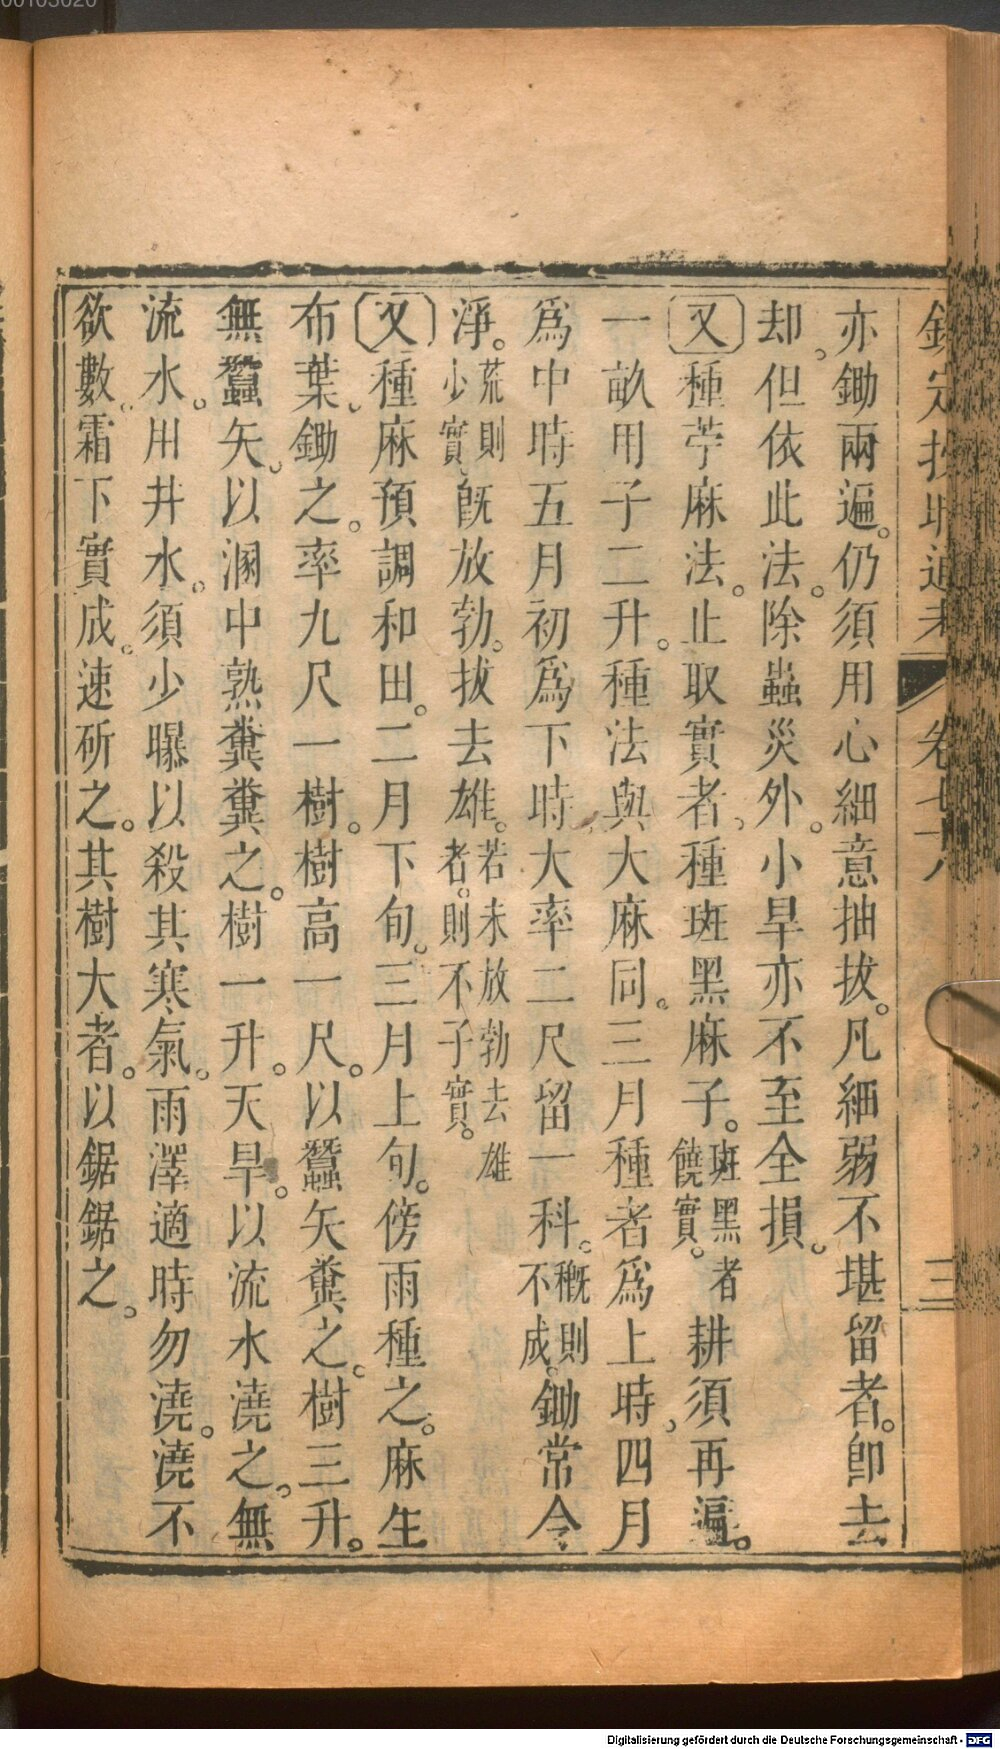 欽定授時通考 卷七十八 三
亦鋤兩遍。仍須用心細意抽拔。凡細弱不堪留者。卽去
却。但依此法。除蟲災外。小旱亦不至全損。
又種苧麻法。止取實者、種斑黑麻子。斑黑者饒實。耕須再遍。
一畝用子二升。種法與大麻同。三月種者爲上時、四月
爲中時五月初爲下時、大率二尺留一科。穊則不成。鋤常令
淨。荒則少實。旣放勃。拔去雄。若未放勃去雄者。則不子實。
又種麻預調和田。二月下旬。三月上旬。傍雨種之。麻生
布葉。鋤之。率九尺一樹。樹高一尺。以蠶矢糞之。樹三升。
無蠶矢。以溷中熟糞糞之。樹一升。天旱。以流水澆之。無
流水。用井水。須少曝以殺其寒氣。雨澤適時勿澆。澆不
欲數。霜下實成。速斫之。其樹大者。以鋸鋸之。
00103020
Digitalisierung gefördert durch die Deutsche Forschungsgemeinschaft - DFG